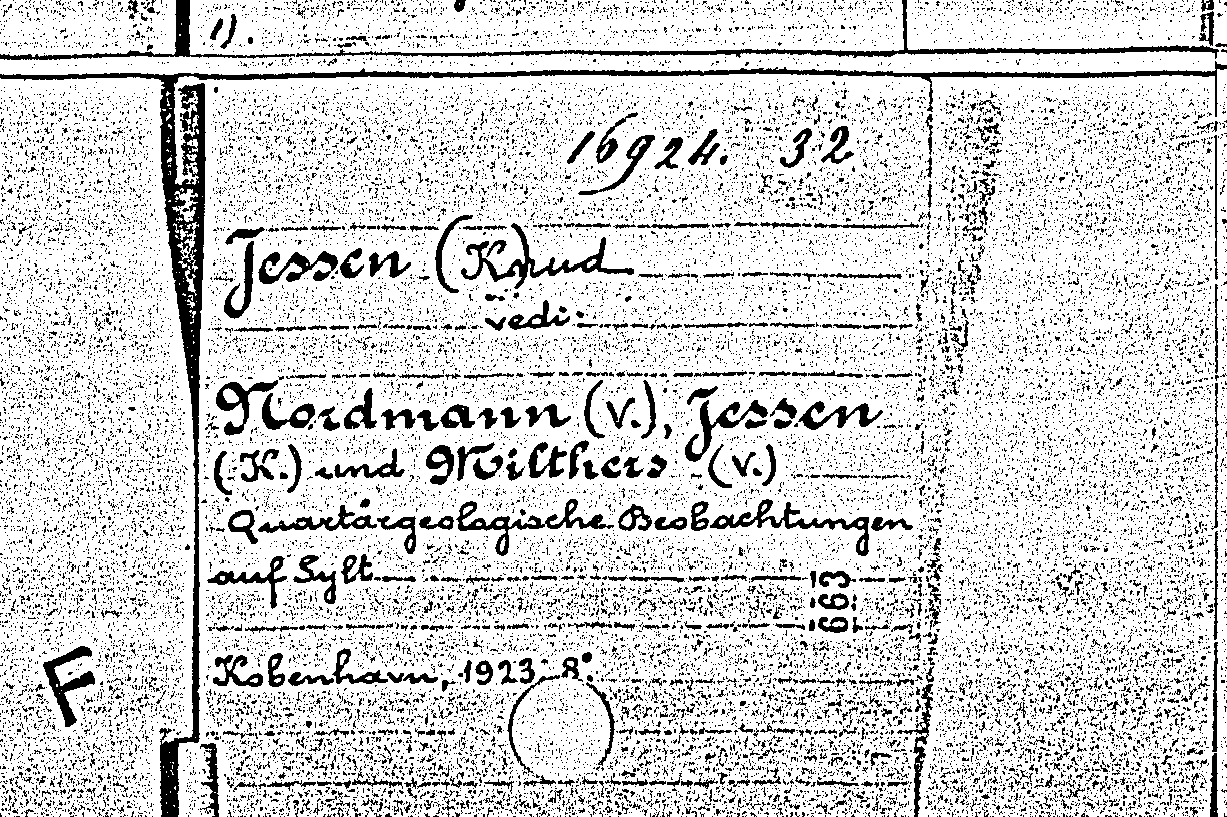 1).
16924. 32
Jessen (Knud)
vedi:
Nordmann (V.), Jessen
(K.) und Milthers (V.)
Quartärgeologische Beobachtungen
auf Sylt
663
Kobenhavn, 1923; 8°.
F